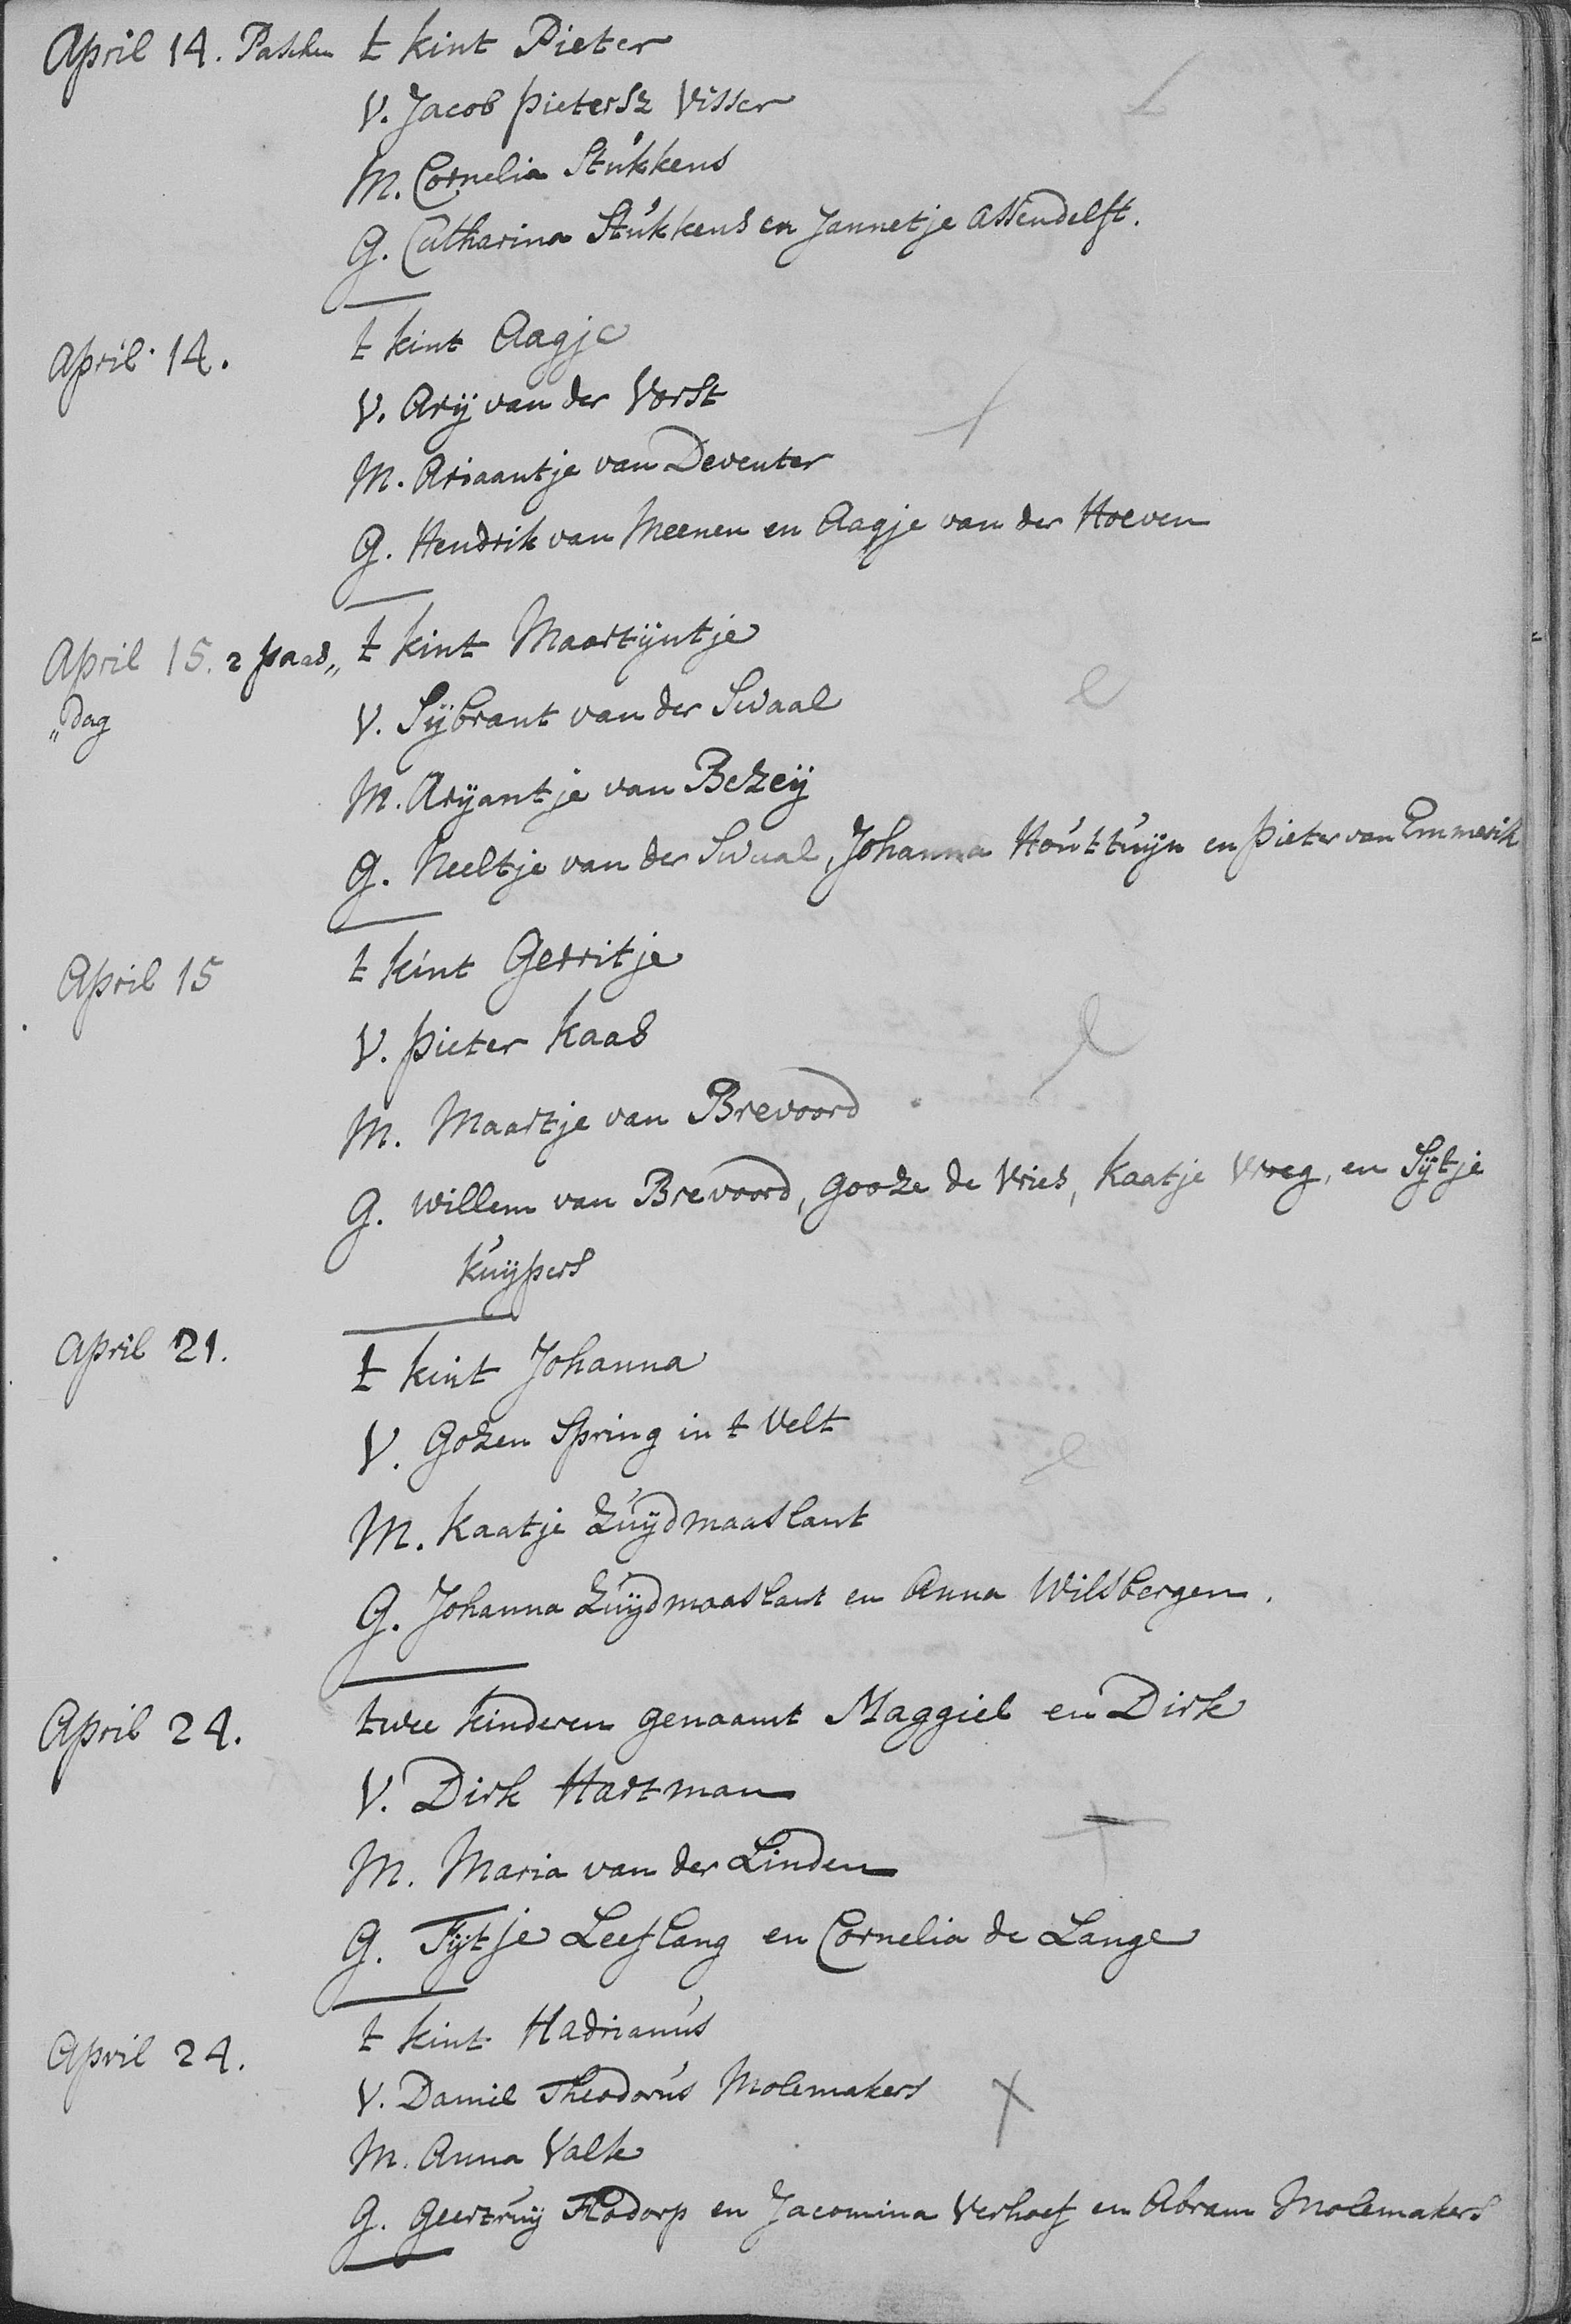 April 14. Paschen t kint Pieter
V. Jacob pietersz Visser
M. Cornelia Stukkens
G. Catharina Stukkens en Jannetje Assendelft.
April 14. t kint Aagje
V. Arij van der Vorst
M. Ariaantje van Deventer
G. Hendrik van Meenen en Aagje van der Hoeven
April 15. 2 paas„ t kint Maartijntje
„dag V. Sijbrant van der Swaal
M. Arijantje van Bezeij
G. Neeltje van der Swaal, Johanna Houttuijn en pieter van Emmerik
April 15 t kint Gerritje
V. pieter Kaas
M. Maartje van Brevoord
G. willem van Brevoord, gooze de Vries, Kaatje Vreeg, en Sijtje
Kuijpers
April 21. t kint Johanna
V. Gozen Spring in t Velt
M. Kaatje Zuijdmaaslant
G. Johanna Zuijdmaaslant en Anna Wilsbergen.
April 24. twee kinderen genaamt Maggiel en Dirk
V. Dirk Hartman
M. Maria van der Linden
G. Fijtje Leeflang en Cornelia de Lange
April 24. t kint Hadrianus
V. Daniel Theodorus Molemakers
M. Anna Valk
G. geertruij Flodorp en Jacomina Verhoef en Abram Molemakers